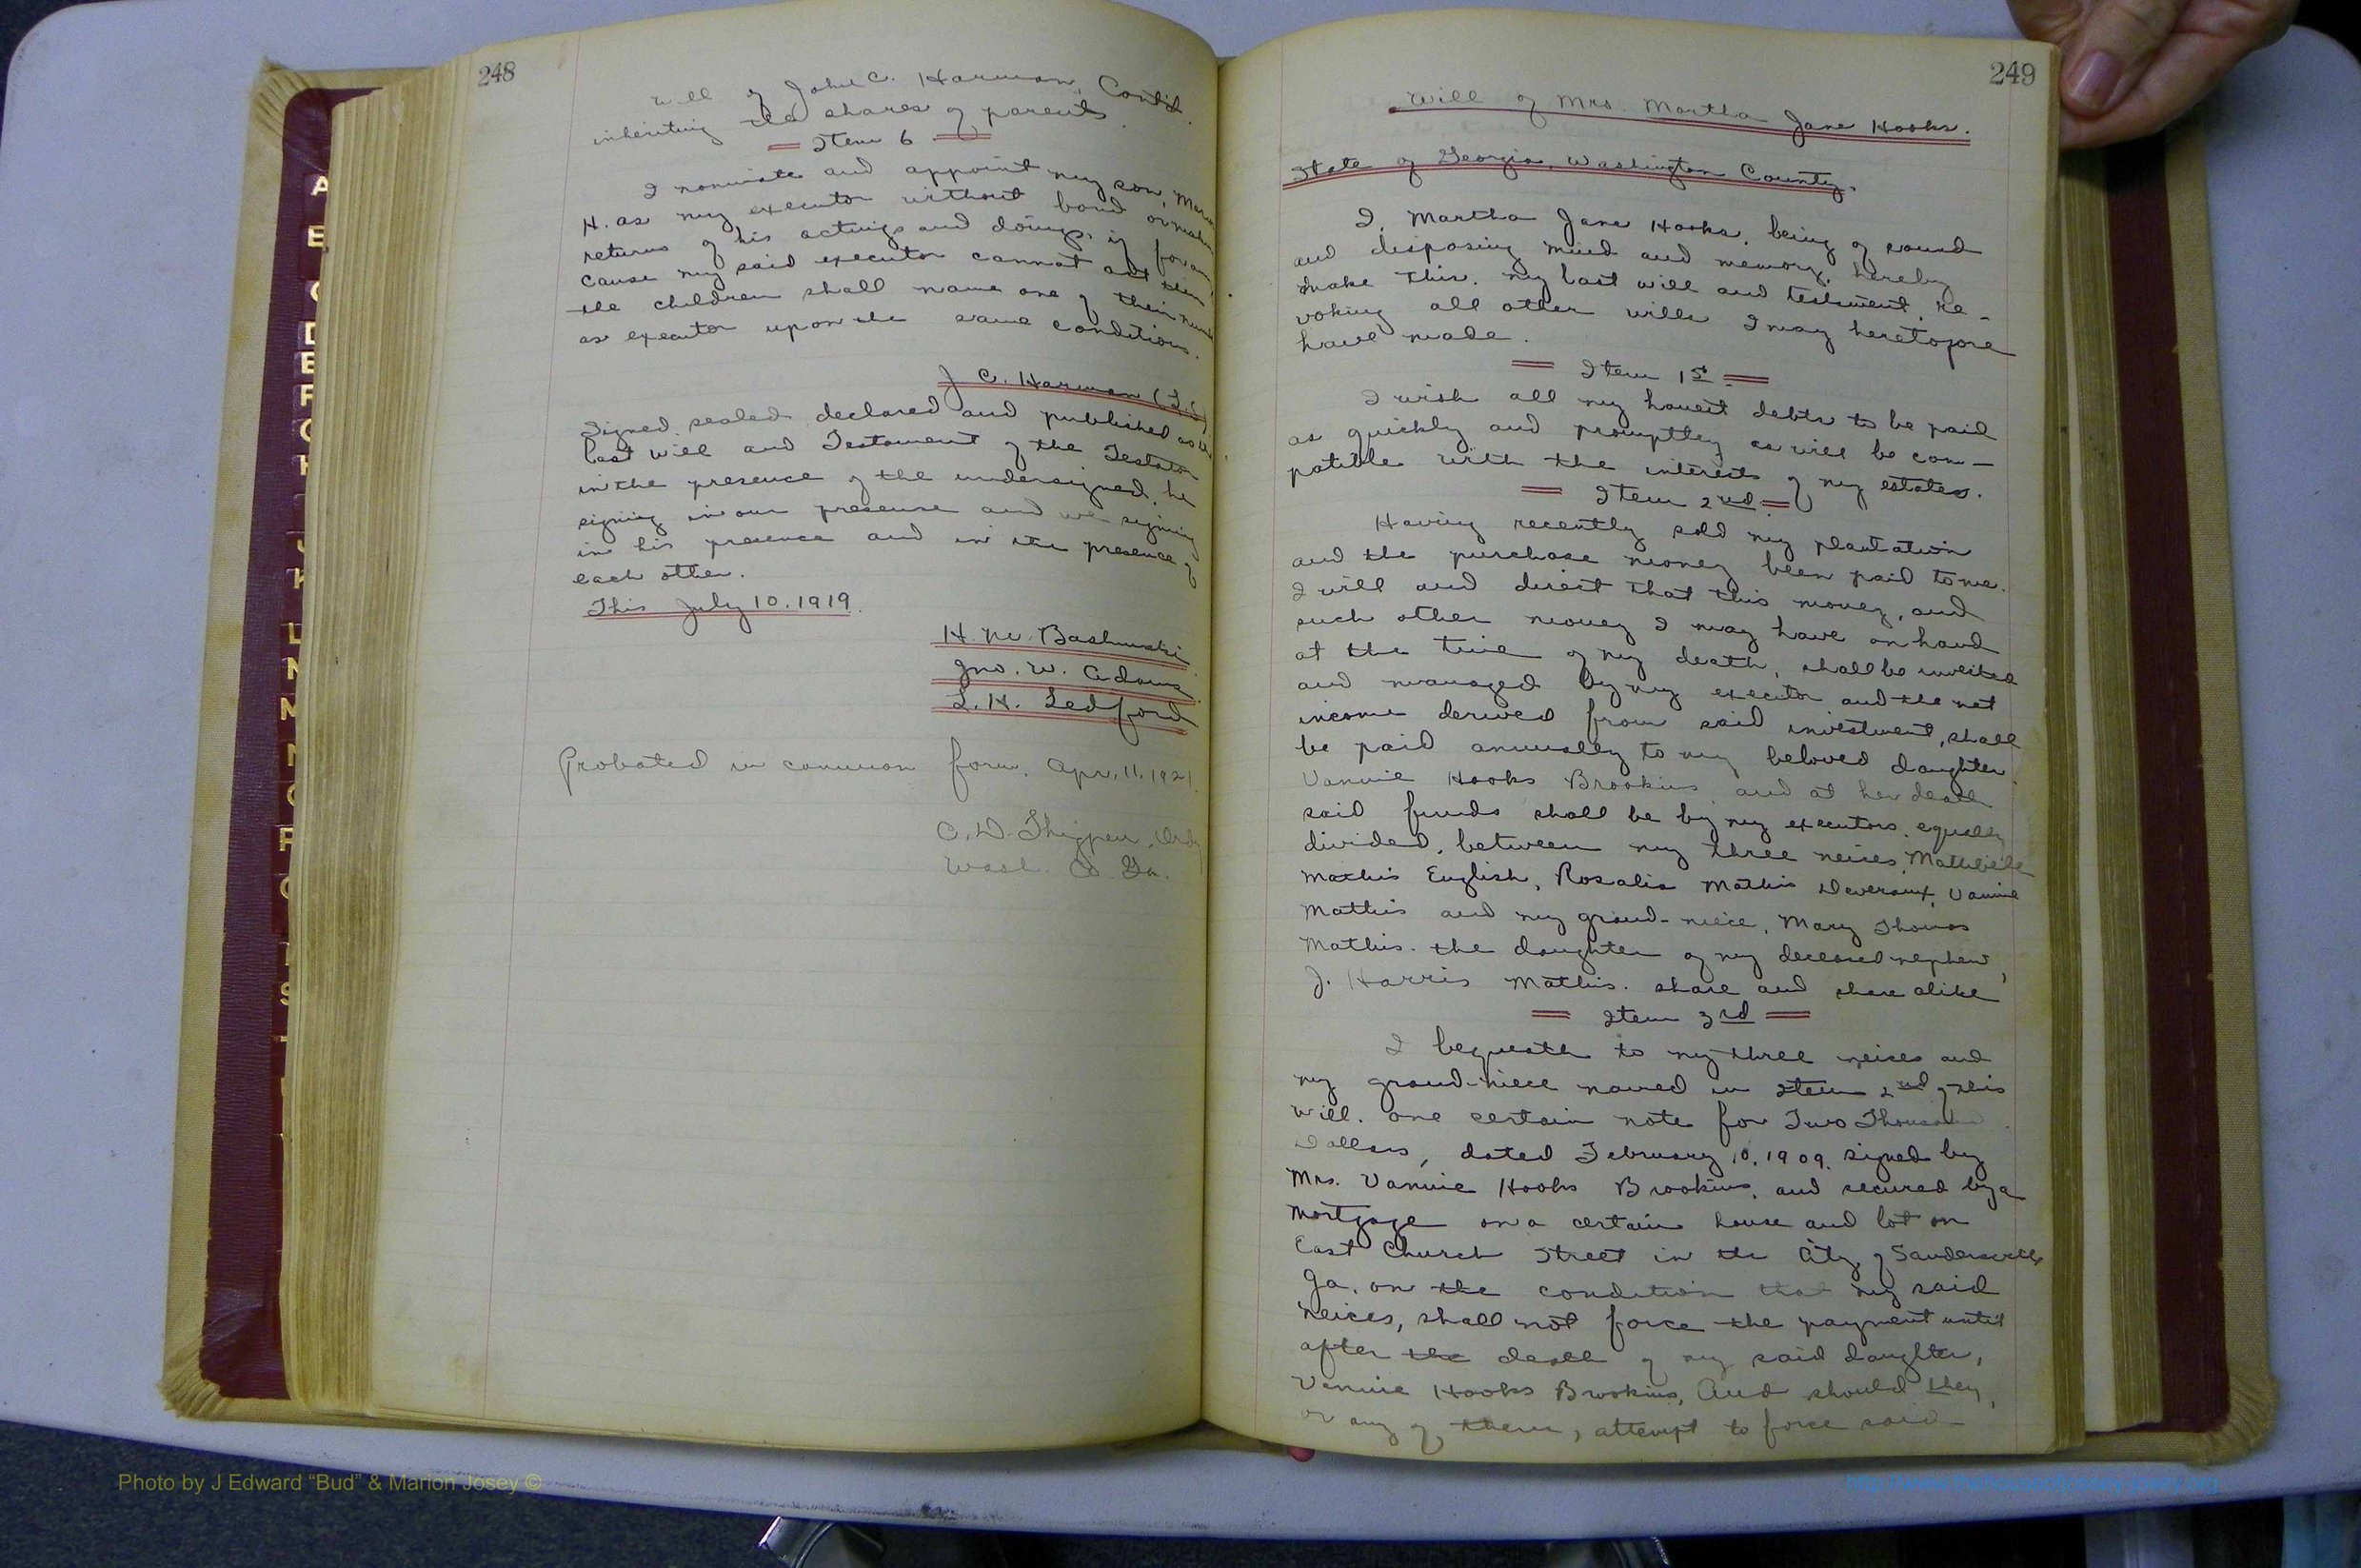 248
Will of John C. Harman, Contd.
inheriting the shares of parents.
Item 6
I nominate and appoint my son,
H. as my executor without bond or
returns of his actings and doings, if for any
cause my said executor cannot act then
the children shall name one of their
as executor upon the same conditions.
J C. Harman (L.S)
Signed sealed declared and published as
last will and Testament of the Testator
in the presence of the undersigned, he
signing in our presence and we signing
in his presence and in the presence of
each other.
This July 10, 1919.
H. M. Bashinski
Jno. W. Adams
L. H. Ledford
Probated in common form, Apr, 11, 1921
C. D. Thigpen, Ordy
Wash. Co Ga.
249
Will of Mrs Martha Jane Hooks.
State of Georgia, Washington County.
I, Martha Jane Hooks, being of sound
and disposing mind and memory, hereby
make this, my last will and testament, re-
voking all other wills I may heretofore
have made.
Item 1st
I wish all my honest debts to be paid
as quickly and promptley as will be com-
patible with the interests of my estates.
Item 2nd
Having recently sold my plantation
and the purchase money been paid to me.
I will and direct that this money, and
such other money I may have on hand
at the time of my death, shall be invested
and managed by my executor and the net
income derived from said investment, shall
be paid annually to my beloved daughter
Vannie Hooks Brookins, and at her death
said funds shall be by my executors, equally
divided, between my three neices,
Mathis English, Rosalie Mathis Deveraux, Vannie
Mathis and my grand-niece, Mary Thomas
Mathis. the daughter of my deceased nephew,
J. Harris Mathis. share and share alike
Item 3rd
I bequeath to my three neices and
my grand-niece named in Item 2nd of this
will. one certain note for Two Thousand
Dollars, dated February 10, 1909. signed by
Mrs. Vannie Hooks Brookins, and secured by a
mortgage on a certain house and lot on
East Church Street in the City of Sandersville
Ga. on the condition that my said
neices, shall not force the payment until
after the death of my said daughter,
Vannie Hooks Brookins, And should they,
or any of them, attempt to force said
Photo by J Edward “Bud” & Marion Josey ©